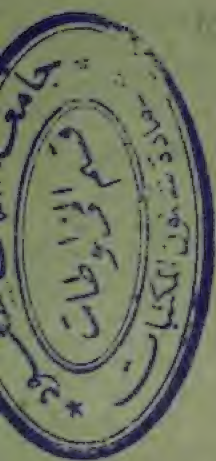 جامعة
سعود
عمادة شئون المكتبات
قسم المخطوطات